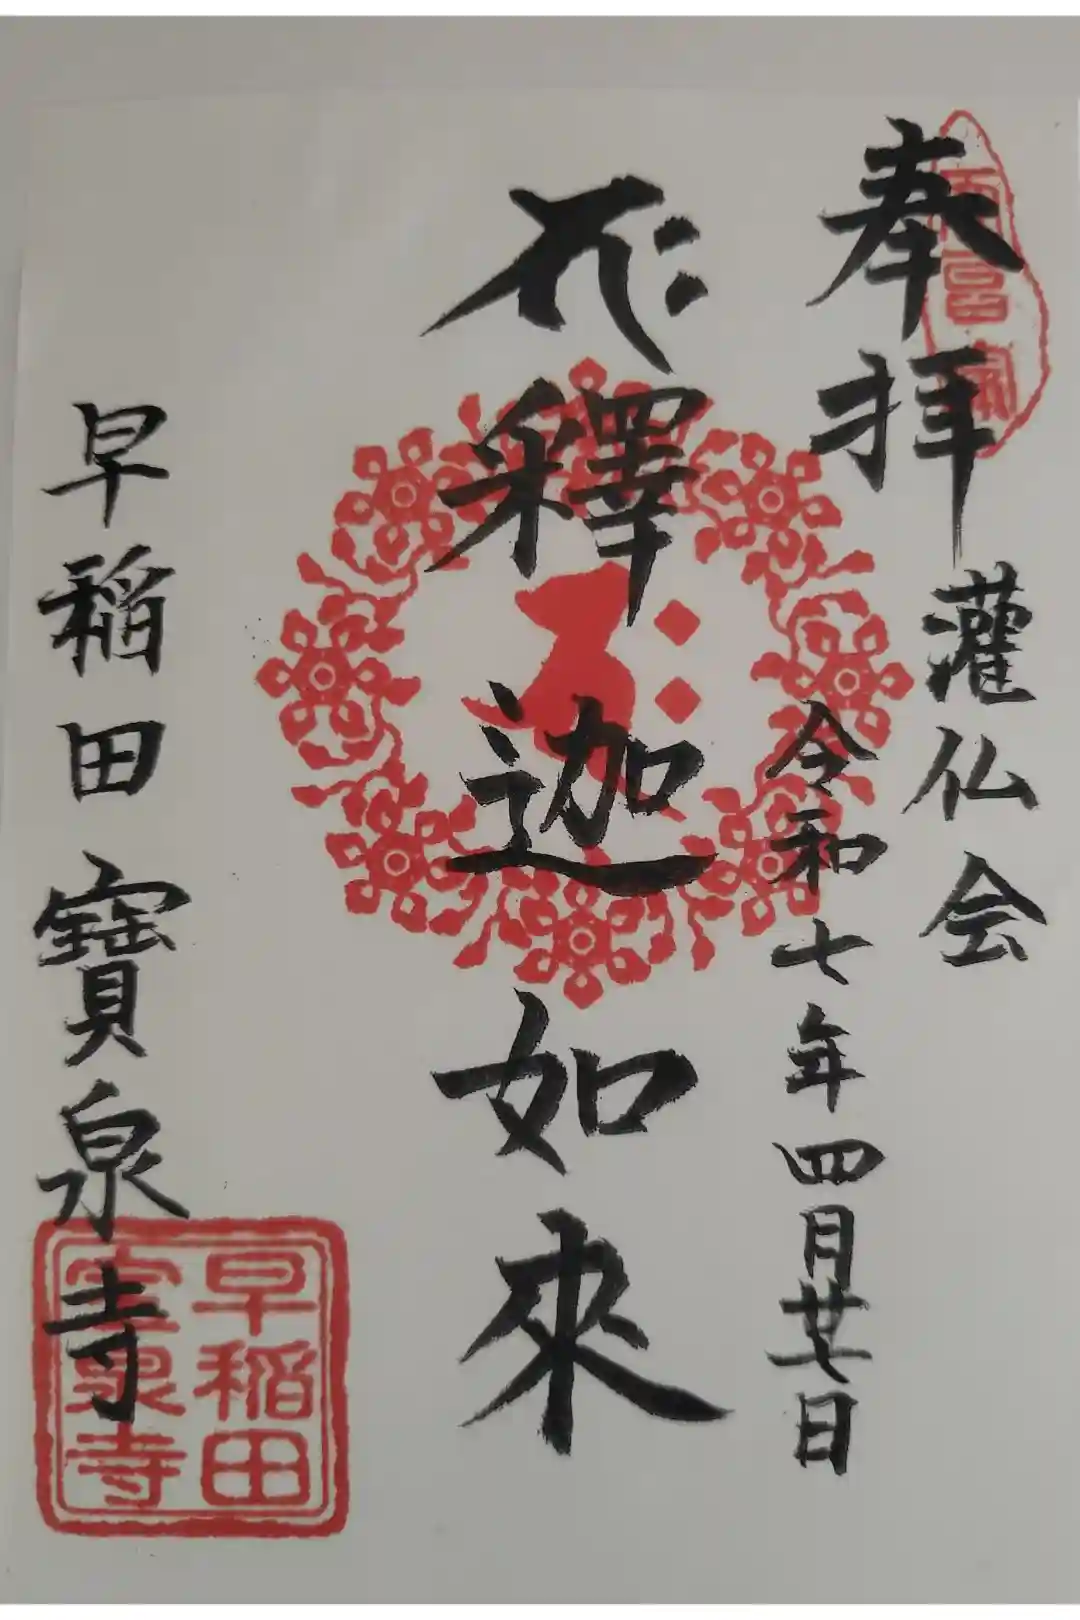 奉拝
灌仏会
令和七年四月廿七日
釋迦如來
早稲田寶泉寺
早稲田
宝泉寺